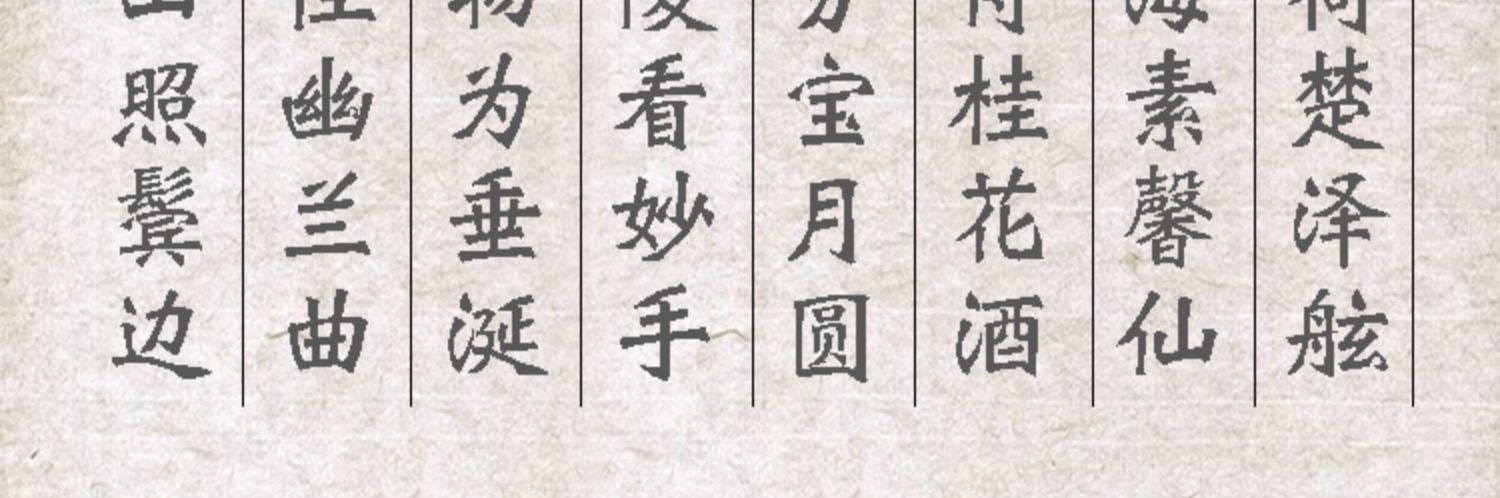 楚泽舷
海素馨仙
桂花酒
宝月圆
看妙手
物为垂涎
幽兰曲
照鬓边